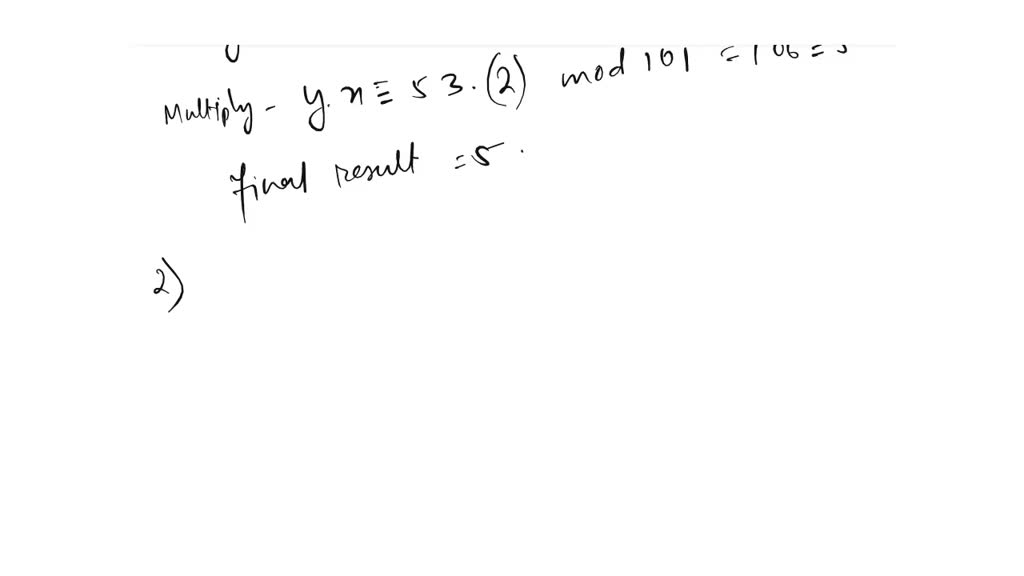 Multiply - y. x ≡ 53. (2) mod 101 = 106 = 5
final result = 5 .
2)